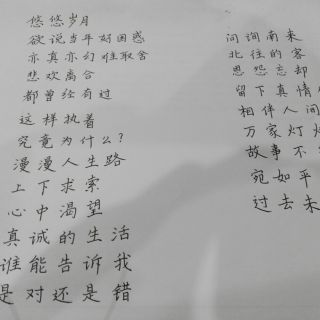 悠悠岁月
欲说当年好困惑
亦真亦幻难取舍
悲欢离合
都曾经有过
这样执着
究竟为什么?
漫漫人生路
上下求索
心中渴望
真诚的生活
谁能告诉我
是对还是错
问询南来
北往的客
恩怨忘却
留下真情
相伴人间
万家灯
故事不
宛如平
过去未